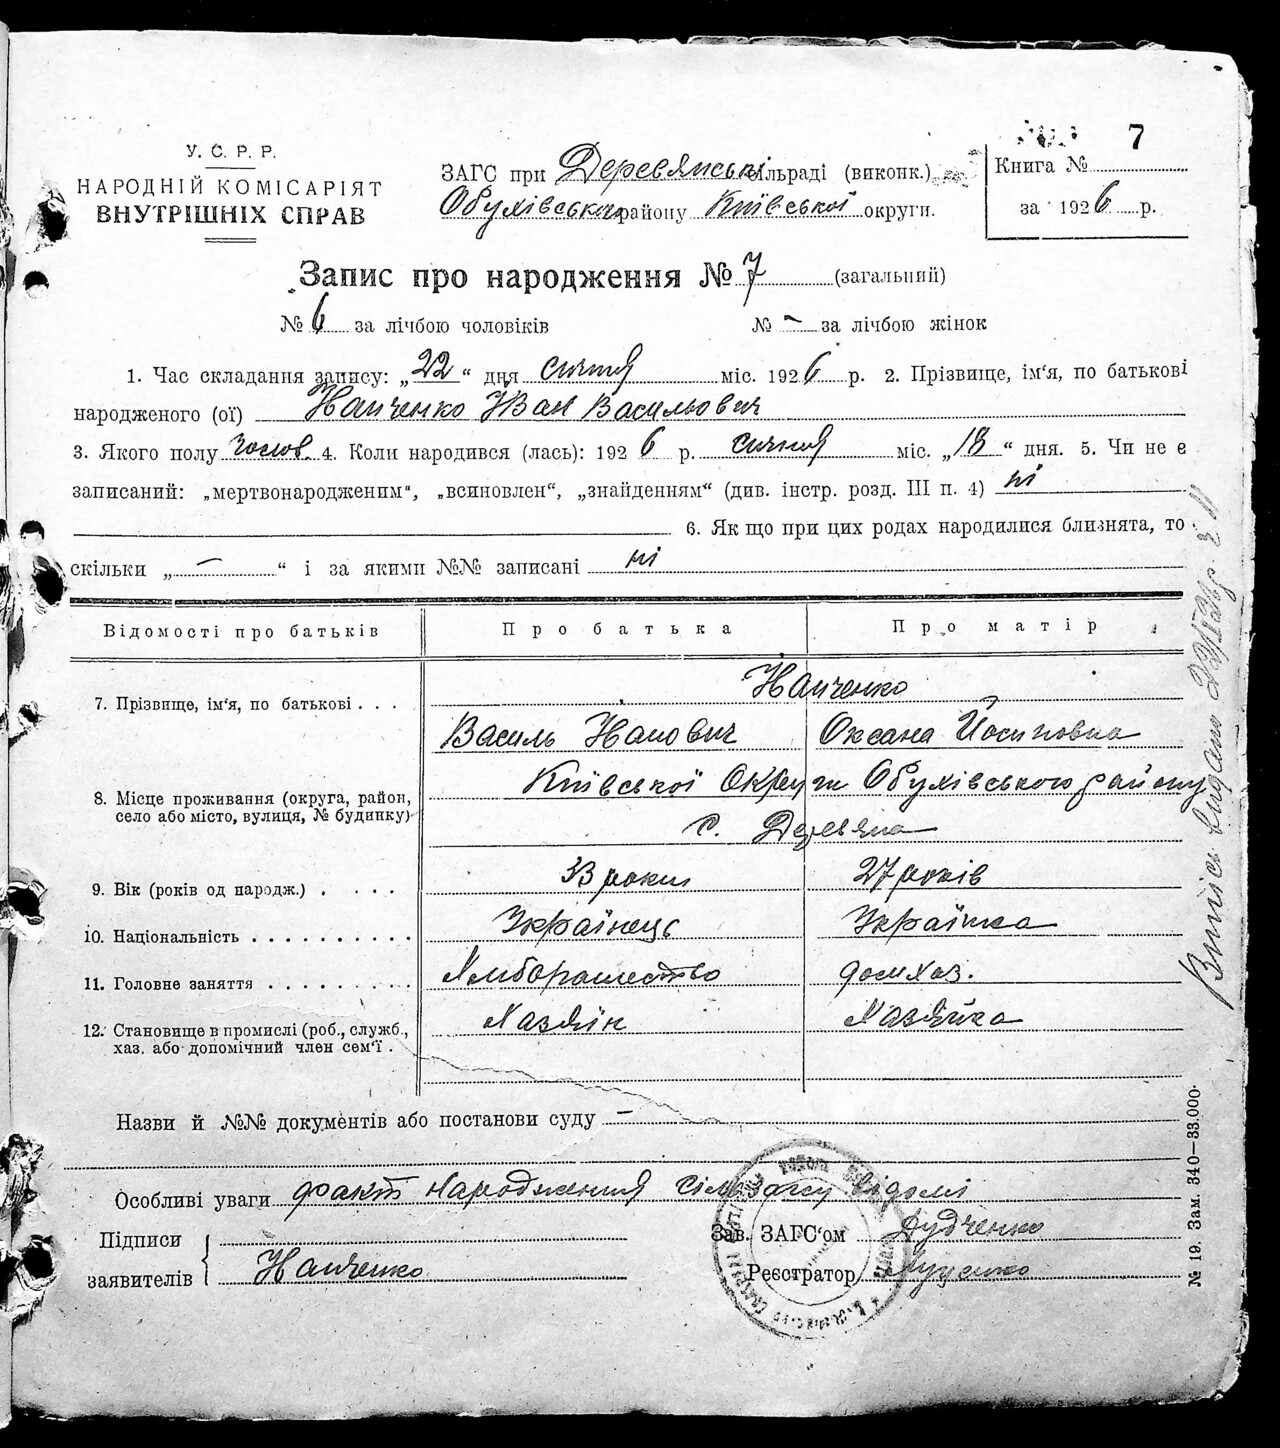 7
У. С. Р. Р.
НАРОДНІЙ КОМІСАРІЯТ
ВНУТРІШНІХ СПРАВ
ЗАГС при Деревянській сільраді (виконк.)
Обухівського району Київської округи.
Книга №
за 1926 р.
Запис про народження № 7 (загальний)
№ 6 за лічбою чоловіків № – за лічбою жінок
1. Час складання запису: „22“ дня січня міс. 1926 р. 2. Прізвище, ім'я, по батькові
народженого (ої) Іванченко Іван Васильович
3. Якого полу чолов. 4. Коли народився (лась): 1926 р. січня міс. „18“ дня. 5. Чи не є
записаний: „мертвонародженим“, „всиновлен“, „знайденням“ (див. інстр. розд. III п. 4) ні
6. Як що при цих родах народилися близнята, то
скільки „–“ і за якими №№ записані ні
Відомості про батьків Про батька Про матір
7. Прізвище, ім'я, по батькові . . . Іванченко
Василь Іванович Оксана Йосиповна
8. Місце проживання (округа, район, село або місто, вулиця, № будинку) Київської Округи Обухівського району
с. Деревяна
9. Вік (років од народж.) . . . . 33 роки 27 років
10. Національність . . . . . . . . . . Українець Українка
11. Головне заняття . . . . . . . . . Хліборобство домхаз.
12. Становище в промислі (роб., служб., хаз. або допомічний член сем'ї . Хазяїн Хазяйка
Назви й №№ документів або постанови суду –
Особливі уваги факт народження сільзагсу відомі
Підписи
заявителів Іванченко
Зав. ЗАГС'ом Дудченко
Реєстратор
№ 19. Зам. 340—33.000.
Випись видано